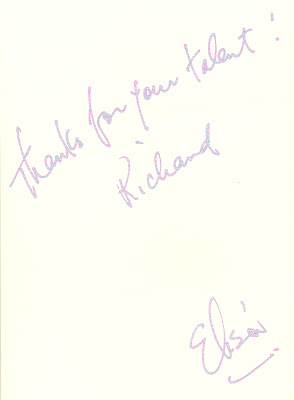 Thanks for your talent!
Richard